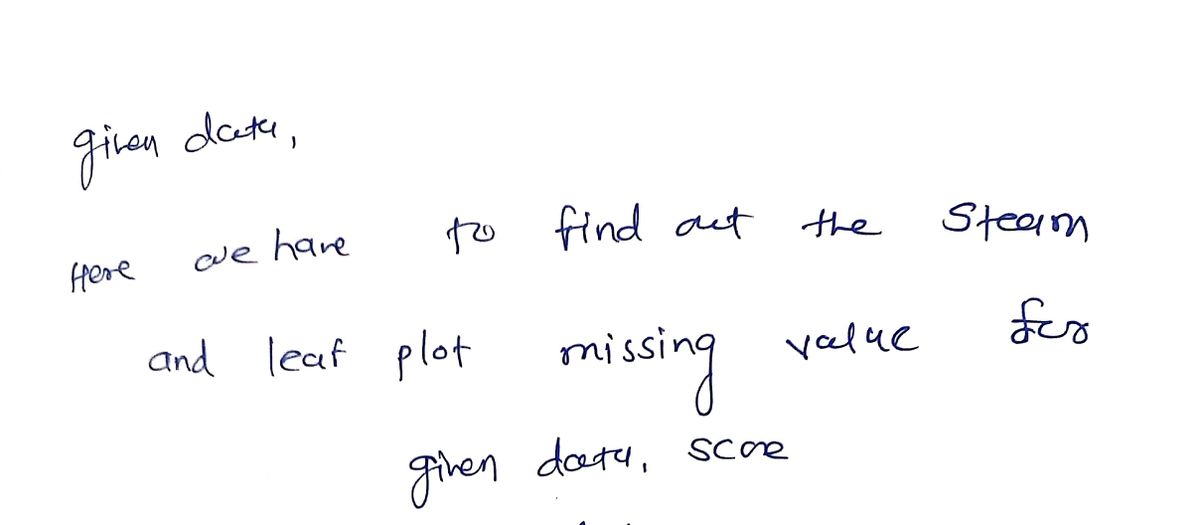 given data,
Here we have to find out the Steam
and leaf plot missing value for
given data, score